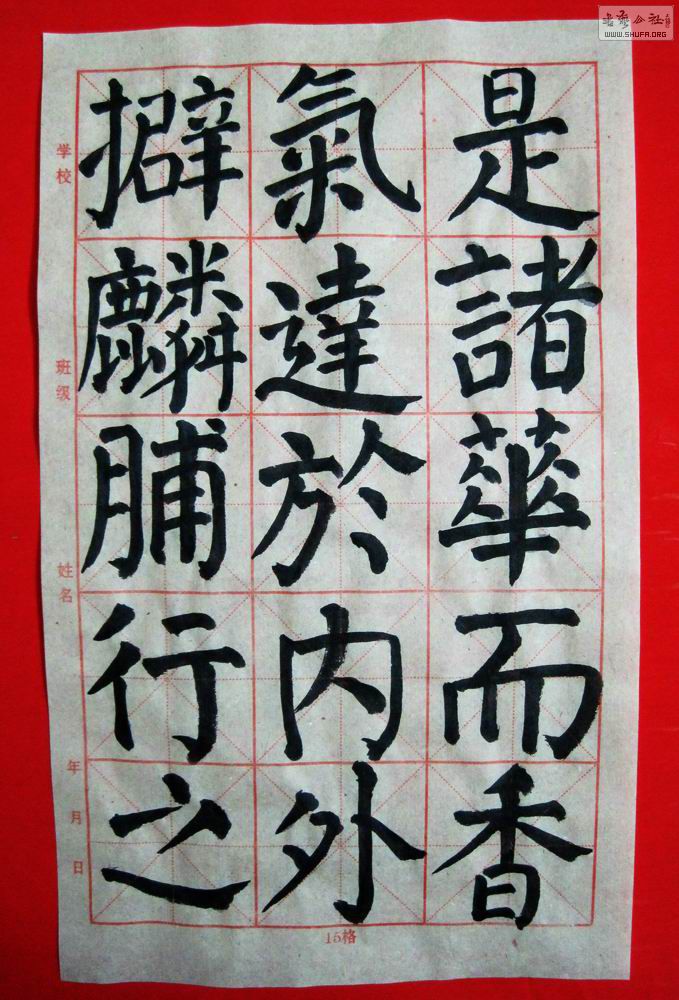 是諸華而香
氣達於内外
擗麟脯行之
学校
班级
姓名
年月日
15格
书法公社
WWW.SHUFA.ORG